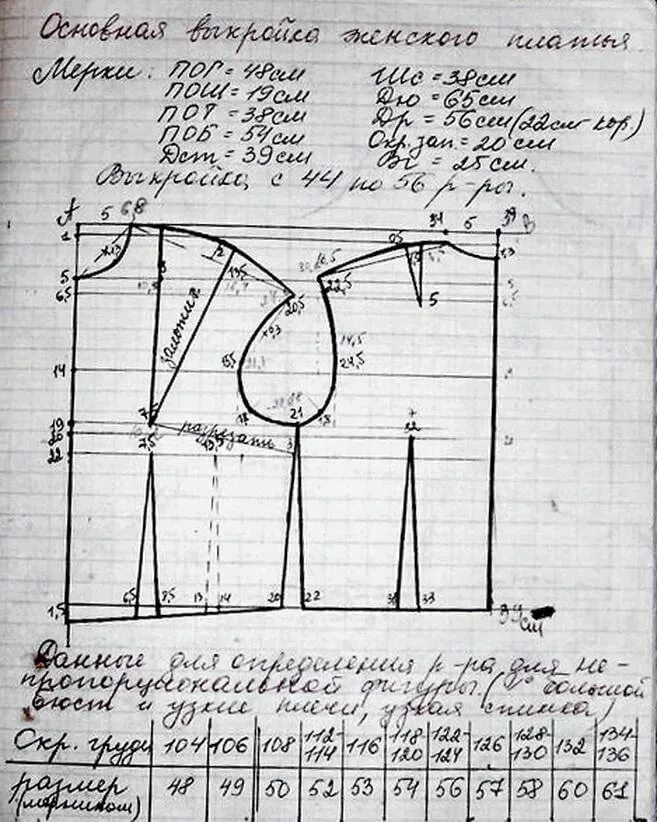 Основная выкройка женского платья
Мерки: ПОГ = 48см Шс = 38см
ПОШ = 19см Дю = 65см
ПОТ = 38см Др = 56см (22см кор.)
ПОБ = 54см Окр. зап. = 20см
Дст = 39см Вг = 25см.
Выкройка с 44 по 56 р-ры.
А 5 6,8 34 5 39 В
1 2 25
5 6,5 13 13,5 22,5
20,5 5
заложить
14 14,5 24,5
19 7,5 18 21 32
20 разрезать
22 7,5 13,5 3
1,5 6,5 8,5 13 14 20 22 31 33 39 см
Данные для определения р-ра для не-
пропорциональной фигуры. ( большой
бюст и узкие плечи, узкая спинка)
Окр. груди 104 106 108 112-114 116 118-120 122-124 126 128-130 132 134-136
размер (мерником) 48 49 50 52 53 54 56 57 58 60 61